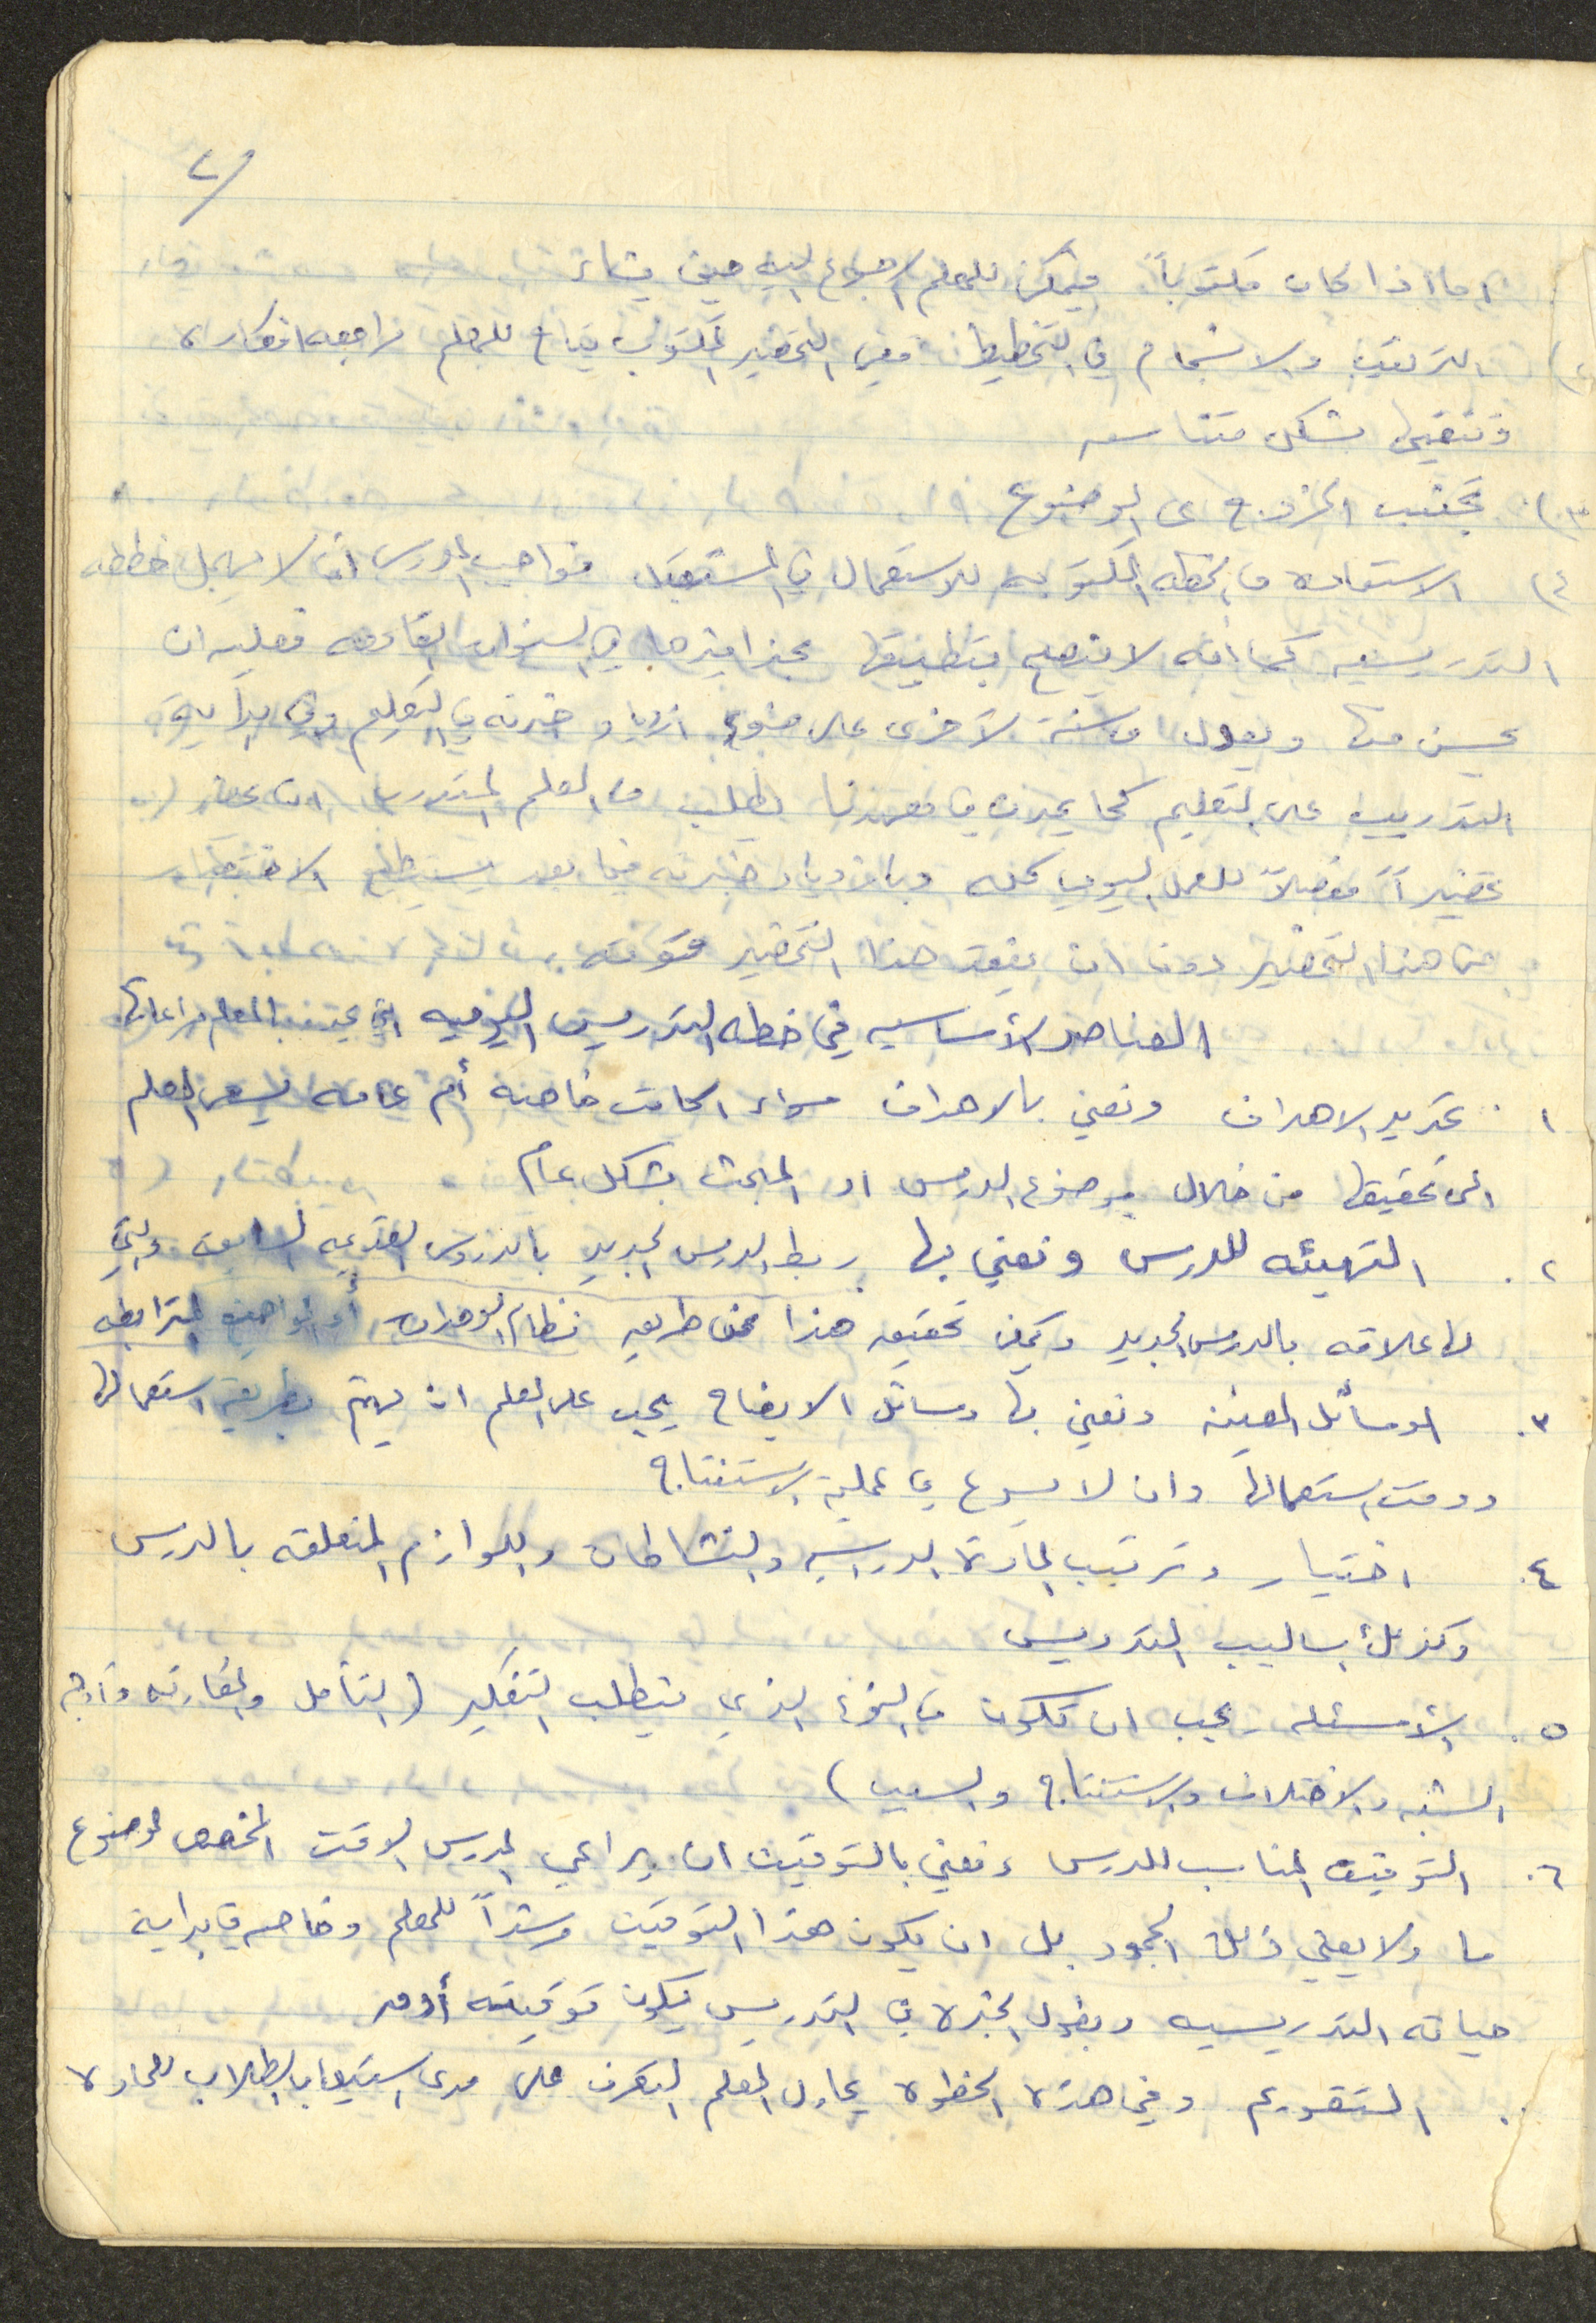 ٢/
اما اذا كان مكتوباً فيمكن للمعلم الرجوع اليه حين يشاء
٢) الترتيب والانسجام في التخطيط ففي التحضير المكتوب يتاح للمعلم مراجعه افكاره
وتنقيحها بشكل متناسق
٣) تجنب الخروج عن الموضوع
٤) الاستفاده من الخطه المكتوبه للاستعمال في المستقبل فواجب المدرس ان لا يهمل خططه
التدريسيه كما انه لا ينصح بتطبيقها بحذافيرها في السنوات القادمه فعليه ان
يحسن منها ويعدل من سنة لأخرى على ضوء ازدياد خبرته في التعليم وفي بداية
التدريب على التعليم كما يحدث في معهدنا يطلب من المعلم المتدرب ان يحضر
تحضيراً مفصلاً للعمل اليومي كله وبازدياد خبرته فيما بعد يستطيع الاختصار
من هذا التحضير دون ان يفقد هذا التحضير قوته
العناصر الأساسيه في خطه التدريس اليوميه التي يجب على المعلم مراعاتها
١. تحديد الاهداف ونعني بالاهداف سواء اكانت خاصه أم عامه يسعى المعلم
الى تحقيقها من خلال موضوع الدرس او المبحث بشكل عام
٢. التهيئه للدرس ونعني بها ربط الدرس الجديد بالدروس القديمه السابقه والتي
لها علاقه بالدرس الجديد ويمكن تحقيق هذا عن طريق نظام الوحدات أو المواضيع المترابطه
٣. الوسائل المعينه ونعني بها وسائل الايضاح يجب على المعلم ان يهتم بطريقة استعمالها
ووقت استعمالها وان لا يسرع في عملية الاستنتاج
٤. اختيار وترتيب الماده الدراسيه والنشاطات واللوازم المتعلقه بالدرس
وكذلك أساليب التدريس
٥. الأسئله يجب ان تكون من النوع الذي يتطلب التفكير (التأمل والمقارنه وأوجه
الشبه والاختلاف والاستنتاج والسبب)
٦. التوقيت المناسب للدرس ونعني بالتوقيت ان يراعي المدرس الوقت المخصص لموضوع
ما ولا يعني ذلك الجمود بل ان يكون هذا التوقيت مرشداً للمعلم وخاصه في بداية
حياته التدريسيه وبطول الخبره في التدريس يكون توقيته أدق
. التقويم وفي هذه الخطوه يحاول المعلم التعرف على مدى استيعاب الطلاب للماده